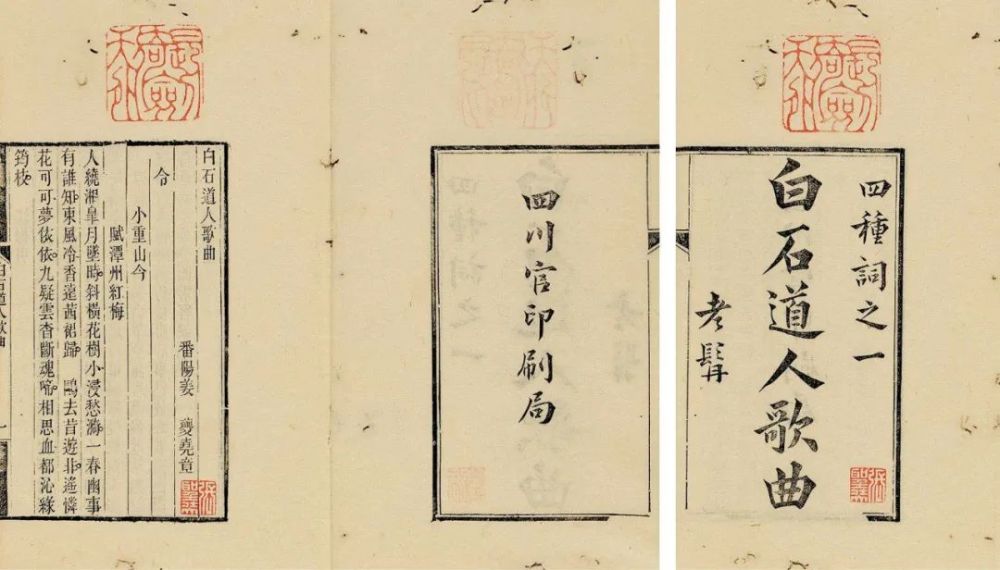 四種詞之一
白石道人歌曲
老髯
四川官印刷局
白石道人歌曲
番陽姜 夔堯章
令
小重山令
賦潭州紅梅
人繞湘皋月墜時斜橫花樹小浸愁漪一春幽事
有誰知東風冷香遠茜裙歸 鷗去昔遊非遙憐
花可可夢依依九疑雲杳斷魂啼相思血都沁綠
筠枝
白石道人歌曲
一